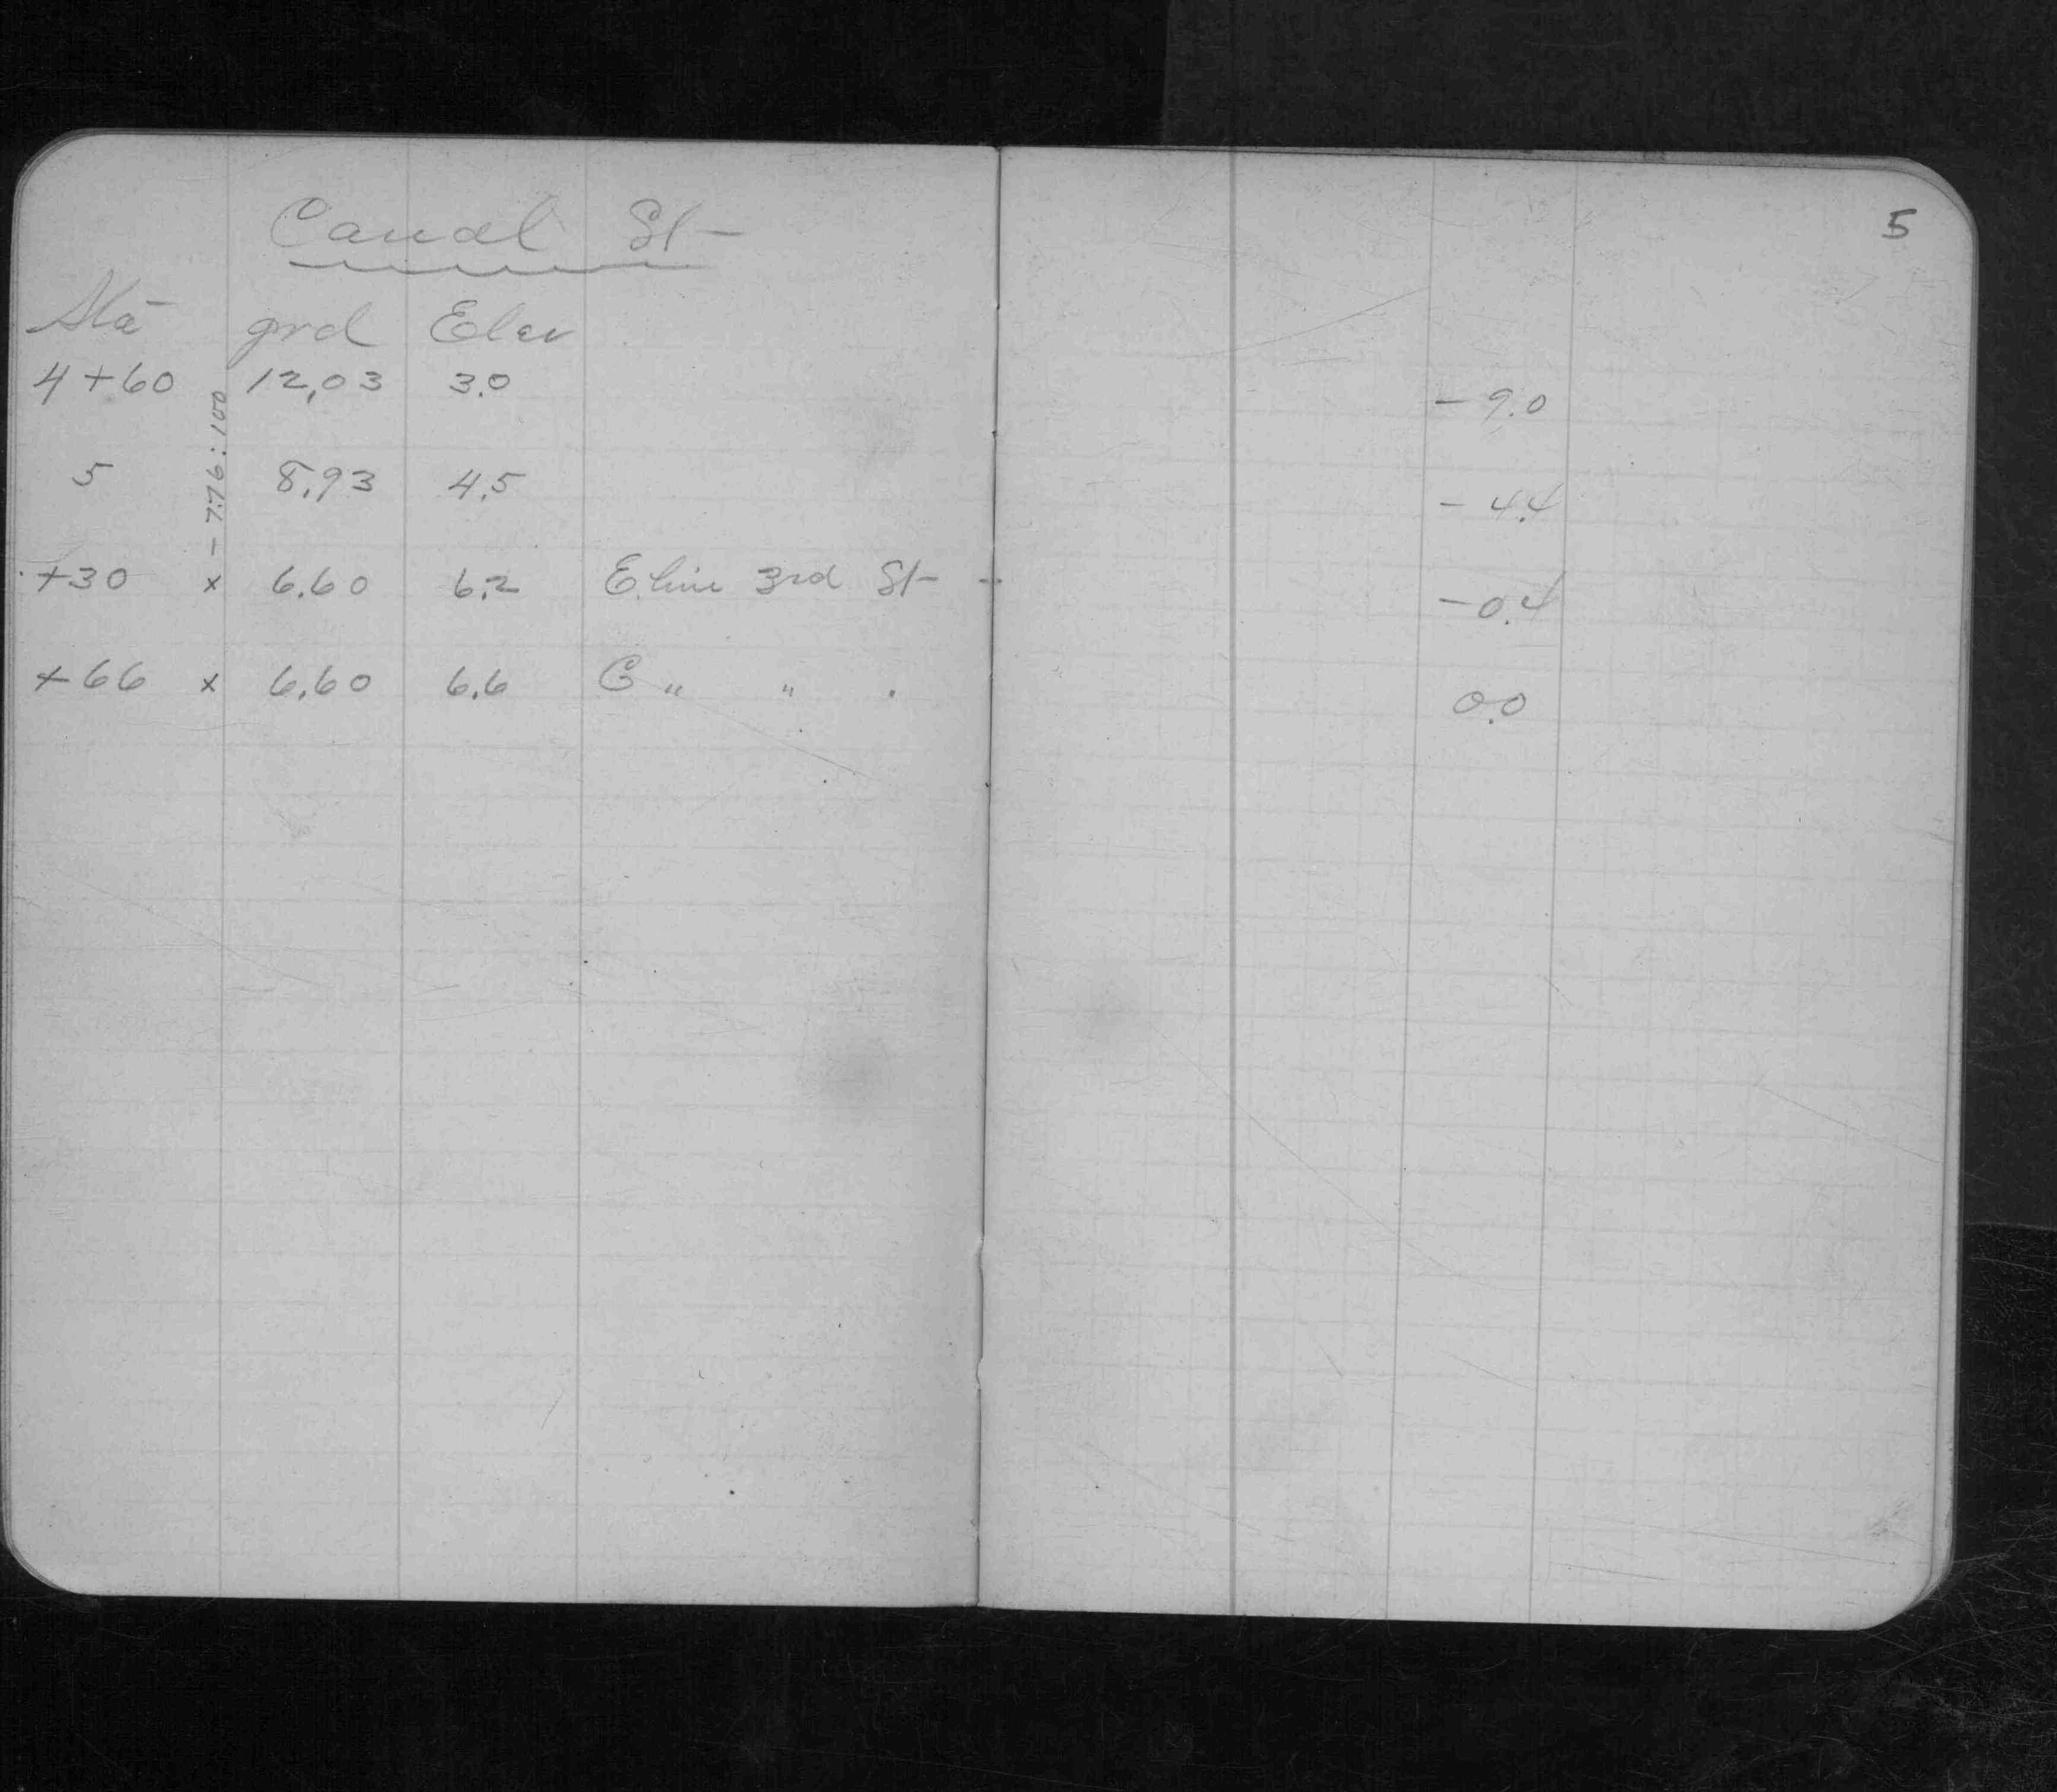 5
Canal St
Sta grd Elev
4+60 12.03 3.0 -9.0
-7.76:100
5 8.93 4.5 -4.4
+30 x 6.60 6.2 E line 3rd St -0.4
+66 x 6.60 6.6 C " " . 0.0